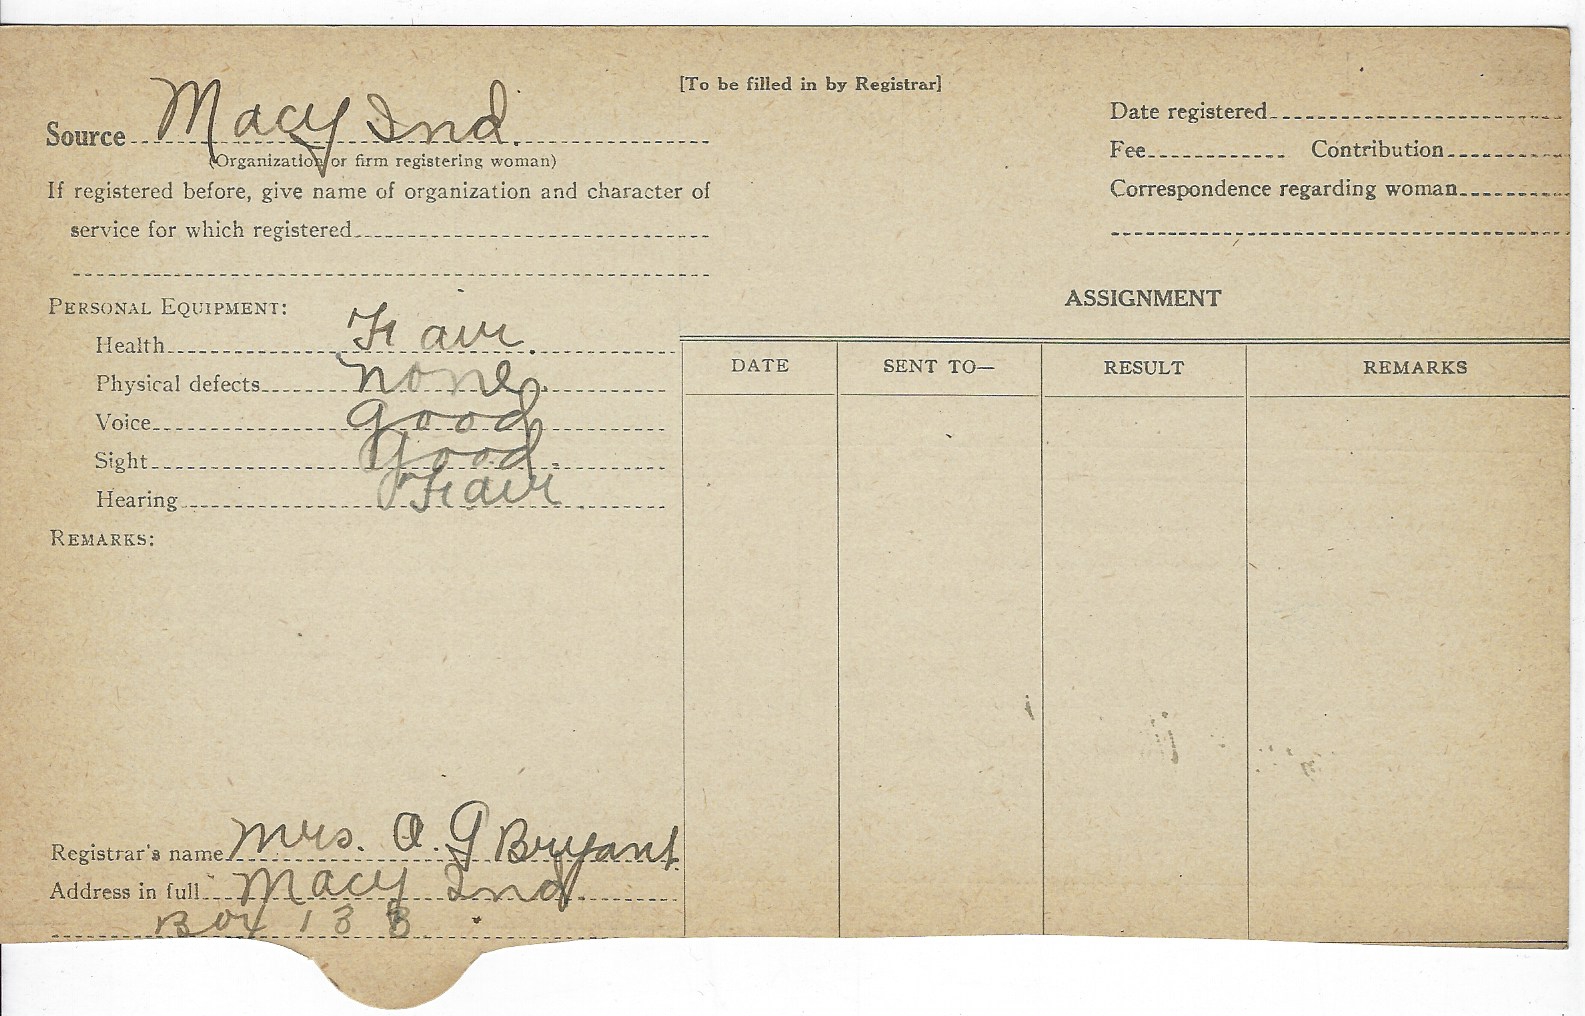 [To be filled in by Registrar]
Source Macy Ind.
(Organization or firm registering woman)
If registered before, give name of organization and character of
service for which registered
PERSONAL EQUIPMENT:
Health Fair.
Physical defects none.
Voice good
Sight good.
Hearing Fair.
REMARKS:
Registrar's name Mrs. A. G Bryant.
Address in full Macy Ind.
Box 133
Date registered
Fee Contribution
Correspondence regarding woman
ASSIGNMENT
DATE SENT TO— RESULT REMARKS